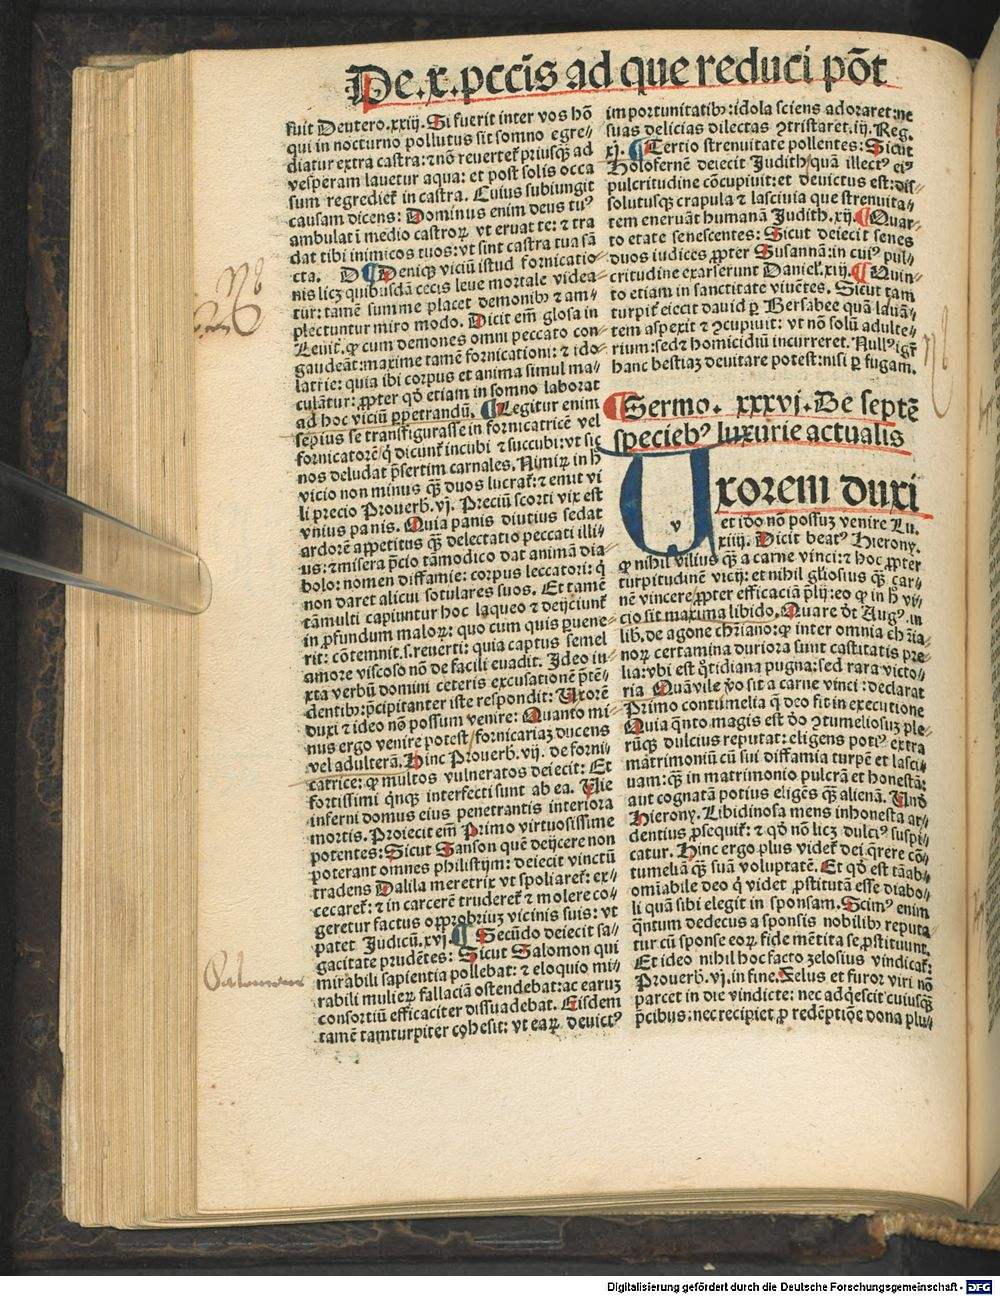 De.x.pccīs ad que reduci pōt
fuit Deutero.xxiij. Si fuerit inter vos hō
qui in nocturno pollutus sit somno egre⸗
diatur extra castra: ⁊ nō reuertet̄ priusq̄ꝫ ad
vesperam lauetur aqua: et post solis occa
sum regrediet̄ in castra. Cuius subiungit
causam dicens: Dominus enim deus tuꝰ
ambulat ī medio castroꝝ vt eruat te: ⁊ tra
dat tibi inimicos tuos: vt sint castra tua sā
cta. D ¶ Deniqꝫ viciū istud fornicatio⸗
nis licꝫ quibusdā cecis leue mortale videa⸗
tur: tamē summe placet demonibꝰ ⁊ am⸗
plectuntur miro modo. Dicit em̄ glosa in
Leuit̄. ꝙ cum demones omni peccato con⸗
gaudeāt: maxime tamē fornicationi: ⁊ ido⸗
latrie: quia ibi corpus et anima simul ma⸗
culātur: ꝓpter qd̄ etiam in somno laborat
ad hoc viciū ꝑpetrandū. ¶ Legitur enim
sepius se transfigurasse in fornicatricē vel
fornicatorē/ q̄ dicunt̄ incubi ⁊ succubi: vt sic
nos deludat p̄sertim carnales. Nimiꝝ in h̄
vicio non minus q̄ꝫ duos lucrat̄: ⁊ emit vi
li precio Prouerb̄. vj. Preciū scorti vix est
vnius panis. Quia panis diutius sedat
ardorē appetitus q̄ꝫ delectatio peccati illi⸗
us: ⁊ misera p̄cio tāmodico dat animā dia⸗
bolo: nomen diffamie: corpus leccatori: q̄
non daret alicui sotulares suos. Et tamē
tāmulti capiuntur hoc laqueo ⁊ deijciunt̄
in ꝓfundum maloꝝ: quo cum quis ꝑuene⸗
rit: cōtemnit.s.reuerti: quia captus semel
amore viscoso nō de facili euadit. Ideo in⸗
xta verbū domini ceteris excusationē p̄tē⸗
dentibꝰ: p̄cipitanter iste respondit: Uxorē
duxi ⁊ ideo nō possum venire: Quanto mi⸗
nus ergo venire potest/ fornicariaꝫ ducens
vel adulterā. Hinc Prouerb̄. vij. de forni⸗
catrice: ꝙ multos vulneratos deiecit: Et
fortissimi q̄nqꝫ interfecti sunt ab ea. Vie
inferni domus eius penetrantis interiora
mortis. Proiecit em̄ Primo virtuosissime
potentes: Sicut Sanson quē deijcere non
poterant omnes philistijm: deiecit vinctū
tradens Dalila meretrix vt spoliaret̄: ex⸗
cecaret̄: ⁊ in carcerē truderet̄ ⁊ molere co⸗
geretur factus opprobriuꝫ vicinis suis: vt
patet Judicū. xvj. ¶ Secūdo deiecit sa⸗
gacitate prudētes: Sicut Salomon qui
mirabili sapientia pollebat: ⁊ eloquio mi⸗
rabili mulieꝝ fallaciā ostendebat: ac earuꝫ
consortiū efficaciter dissuadebat. Eisdem
tamē tamturpiter cohesit: vt eaꝝ deuictꝰ
importunitatibꝰ: idola sciens adoraret: ne
suas delicias dilectas ꝯtristaret. iij. Reg.
xj. ¶ Tertio strenuitate pollentes: Sicut
Holofernē deiecit Judith/ quā illectꝰ eiꝰ
pulcritudine cōcupiuit: et deuictus est: dis⸗
solutusqꝫ crapula ⁊ lasciuia que strenuita⸗
tem eneruāt humanā Judith. xij. ¶ Quar⸗
to etate senescentes: Sicut deiecit senes
duos iudices ꝓpter Susannā: in cuiꝰ pul⸗
critudine exarserunt Daniel̄. xiij. ¶ Quin⸗
to etiam in sanctitate viuētes. Sicut tam
turpit̄ eiecit dauid ꝑ Bersabee quā lauā⸗
tem aspexit ⁊ ꝯcupiuit: vt nō solū adulte⸗
rium: sed⁊ homicidiū incurreret. Nullꝰ igr̄
hanc bestiaꝫ deuitare potest: nisi ꝑ fugam.
¶ Sermo. xxxvj. De septē
speciebꝰ luxurie actualis
Uxorem duxi
v
et ido nō possuꝫ venire Lu.
xiiij. Dicit beatꝰ Hierony.
ꝙ nihil viliꝰ q̄ꝫ a carne vinci: ⁊ hoc ꝓpter
turpitudinē vicij: et nihil gl̄iosius q̄ꝫ car⸗
nē vincere/ ꝓpter efficaciā p̄lij: eo ꝙ in h̄ vi⸗
cio sit maxima libido. Quare dt̄ Augꝰ. in
lib. de agone chr̄iano: ꝙ inter omnia chr̄ia⸗
noꝝ certamina duriora sunt castitatis pre⸗
lia: vbi est q̄tidiana pugna: sed rara victo⸗
ria Quāvile v̄o sit a carne vinci: declarat
Primo contumelia q̄ deo fit in executione
Quia q̄nto magis est do ꝯtumeliosuꝫ ple⸗
rūqꝫ dulcius reputat: eligens potiꝰ extra
matrimoniū cū sui diffamia turpē et lasci⸗
uam: q̄ꝫ in matrimonio pulcrā et honestā:
aut cognatā potius eligēs q̄ꝫ alienā. Un̄
Hierony. Libidinosa mens inhonesta ar⸗
dentius ꝓsequit̄: ⁊ qd̄ nō licꝫ dulciꝰ suspi⸗
catur. Hinc ergo plus videt̄ dei q̄rere cō⸗
tumeliā q̄ꝫ suā voluptatē. Et qd̄ est tāab⸗
omīabile deo q̄ videt ꝓstitutā esse diabo⸗
li quā sibi elegit in sponsam. Scimꝰ enim
q̄ntum dedecus a sponsis nobilibꝰ reputa⸗
tur cū sponse eoꝝ fide mētita se ꝓstituunt.
Et ideo nihil hoc facto zelosius vindicat̄:
Prouerb̄. vj. in fine. Zelus et furor viri nō
parcet in die vindicte: nec adq̄escit cuiusqꝫ
p̄cibus: nec recipiet ꝓ redēptiōe dona plu⸗
Nb
Salomonis
Nb
Digitalisierung gefördert durch die Deutsche Forschungsgemeinschaft - DFG